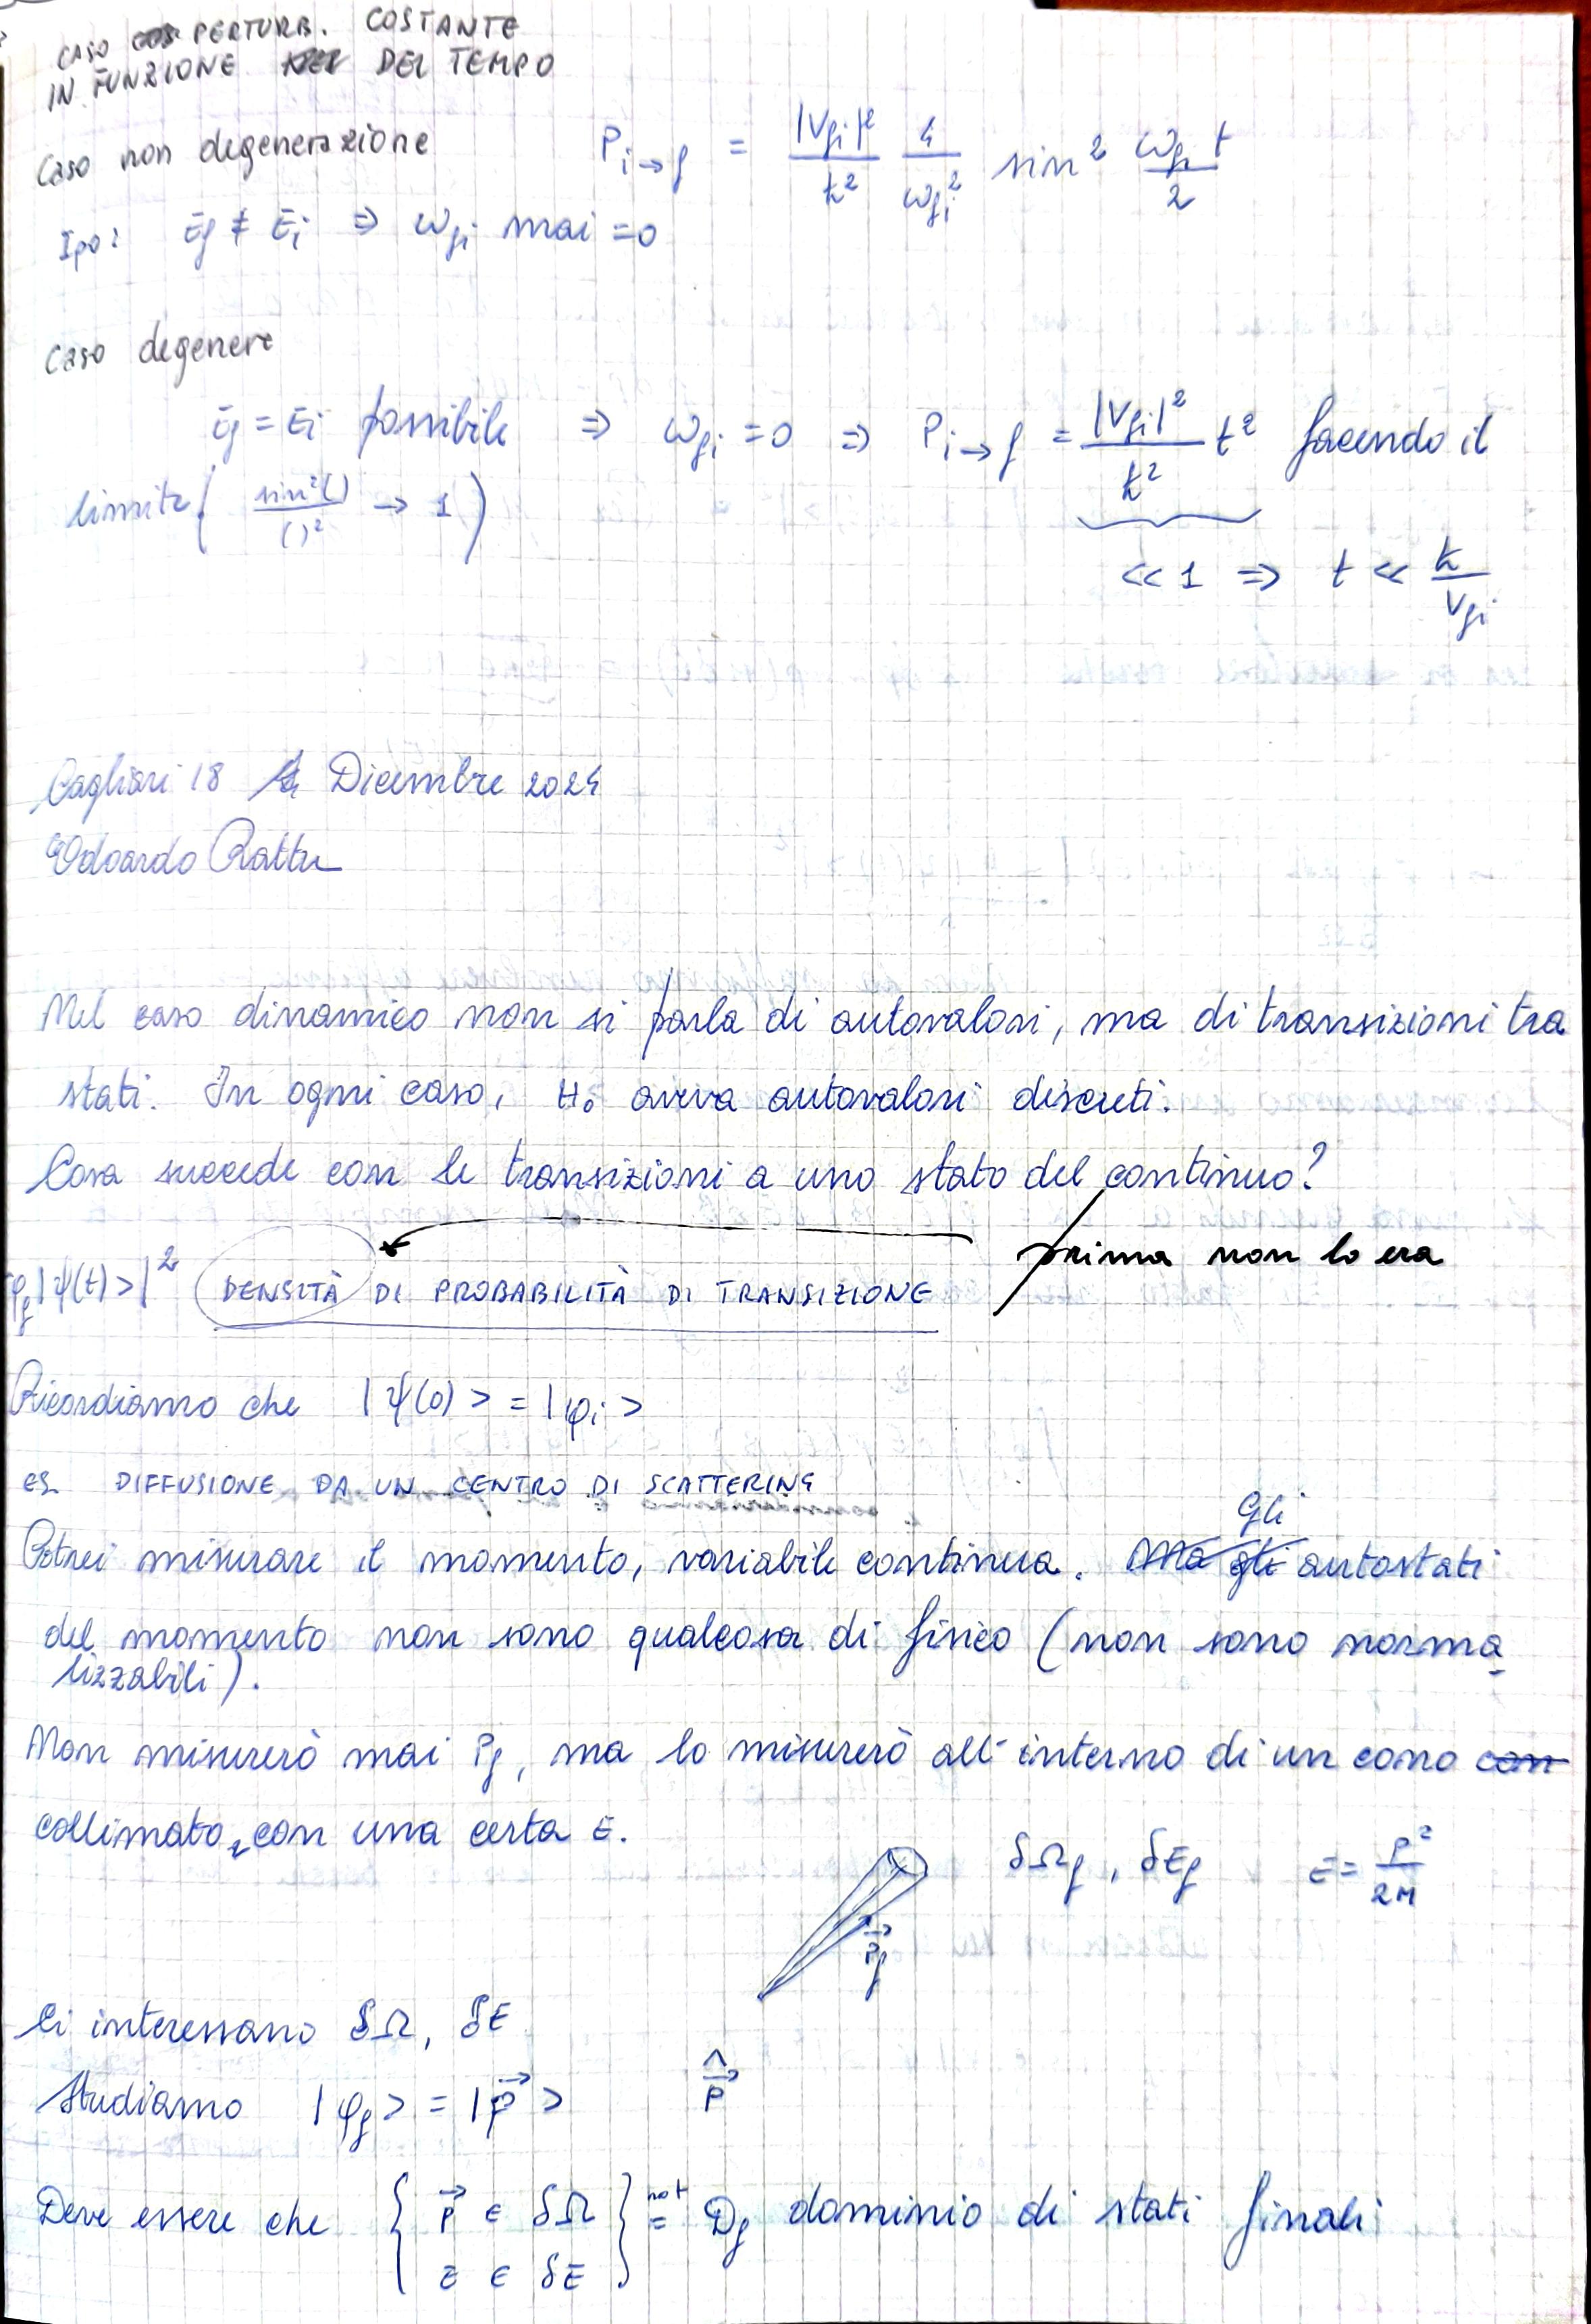 CASO PERTURB. COSTANTE
IN FUNZIONE DEL TEMPO
Caso non degenerazione P_{i→f} = |V_{fi}|²/ħ² 4/ω_{fi}² sin² ω_{fi} t/2
Ipo: E_f ≠ E_i ⇒ ω_{fi} mai =0
caso degenere
E_f = E_i possibile ⇒ ω_{fi} = 0 ⇒ P_{i→f} = |V_{fi}|²/ħ² t² facendo il
limite ( sin²( )/( )² → 1 )
<< 1 ⇒ t << ħ/V_{fi}
Cagliari 18 Dicembre 2024
Edoardo Rattu
Nel caso dinamico non si parla di autovalori, ma di transizioni tra
stati. In ogni caso, H₀ aveva autovalori discreti.
Cosa succede con le transizioni a uno stato del continuo?
prima non lo era
φ_f|ψ(t)>|² DENSITÀ DI PROBABILITÀ DI TRANSIZIONE
Ricordiamo che |ψ(0)> = |φ_i>
es DIFFUSIONE DA UN CENTRO DI SCATTERING
Potrei misurare il momento, variabile continua. Gli autostati
del momento non sono qualcosa di fisico (non sono norma
lizzabili).
Non misurerò mai P_f, ma lo misurerò all'interno di un cono
collimato, con una certa E.
δΩ_f, δE_f E = P²/2M
P_f
Ci interessano δΩ, δE
Studiamo |φ_f> = |p⃗> P̂
Deve essere che { p⃗ ∈ δΩ } not= D_f dominio di stati finali
E ∈ δE